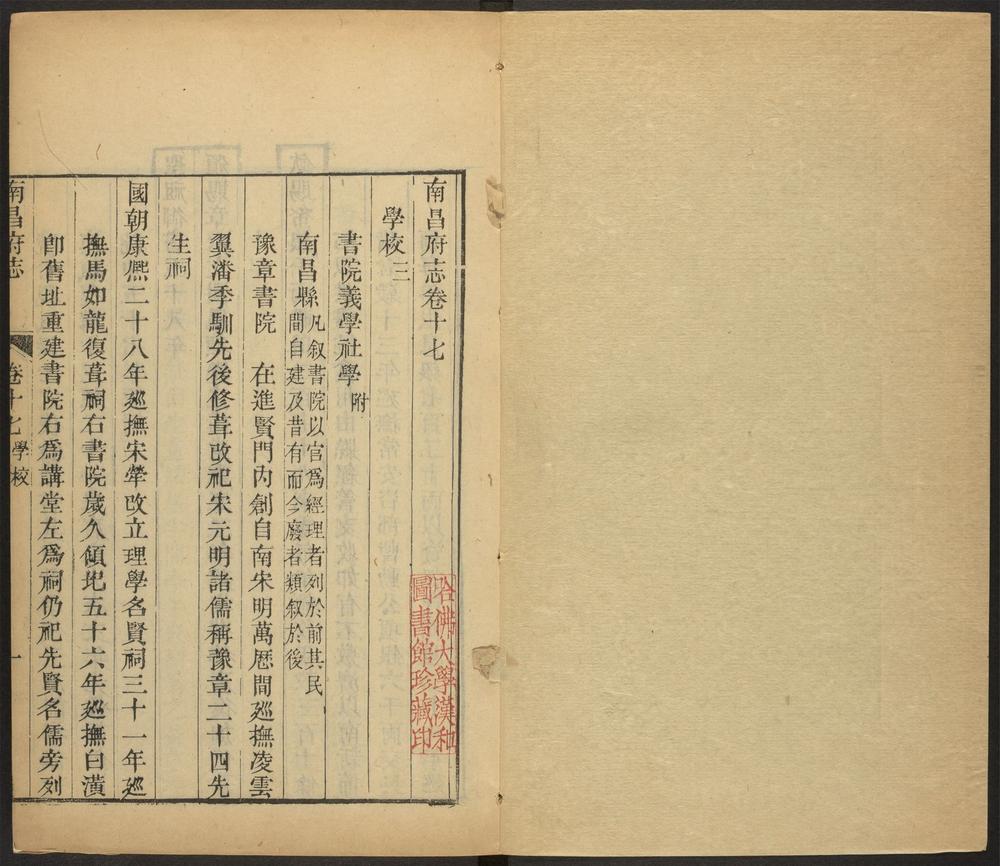 南昌府志卷十七
學校三
書院義學社學附
南昌縣凡叙書院以官爲經理者列於前其民
間自建及昔有而今廢者類叙於後
豫章書院 在進賢門內創自南宋明萬厯間廵撫凌雲
翼潘季馴先後修葺改祀宋元明諸儒稱豫章二十四先
生祠
國朝康熈二十八年廵撫宋犖改立理學名賢祠三十一年廵
撫馬如龍復葺祠右書院歲久傾圯五十六年廵撫白潢
卽舊址重建書院右爲講堂左爲祠仍祀先賢名儒旁列
南昌府志 卷十七 學校 一
哈佛大學漢和
圖書館珍藏印